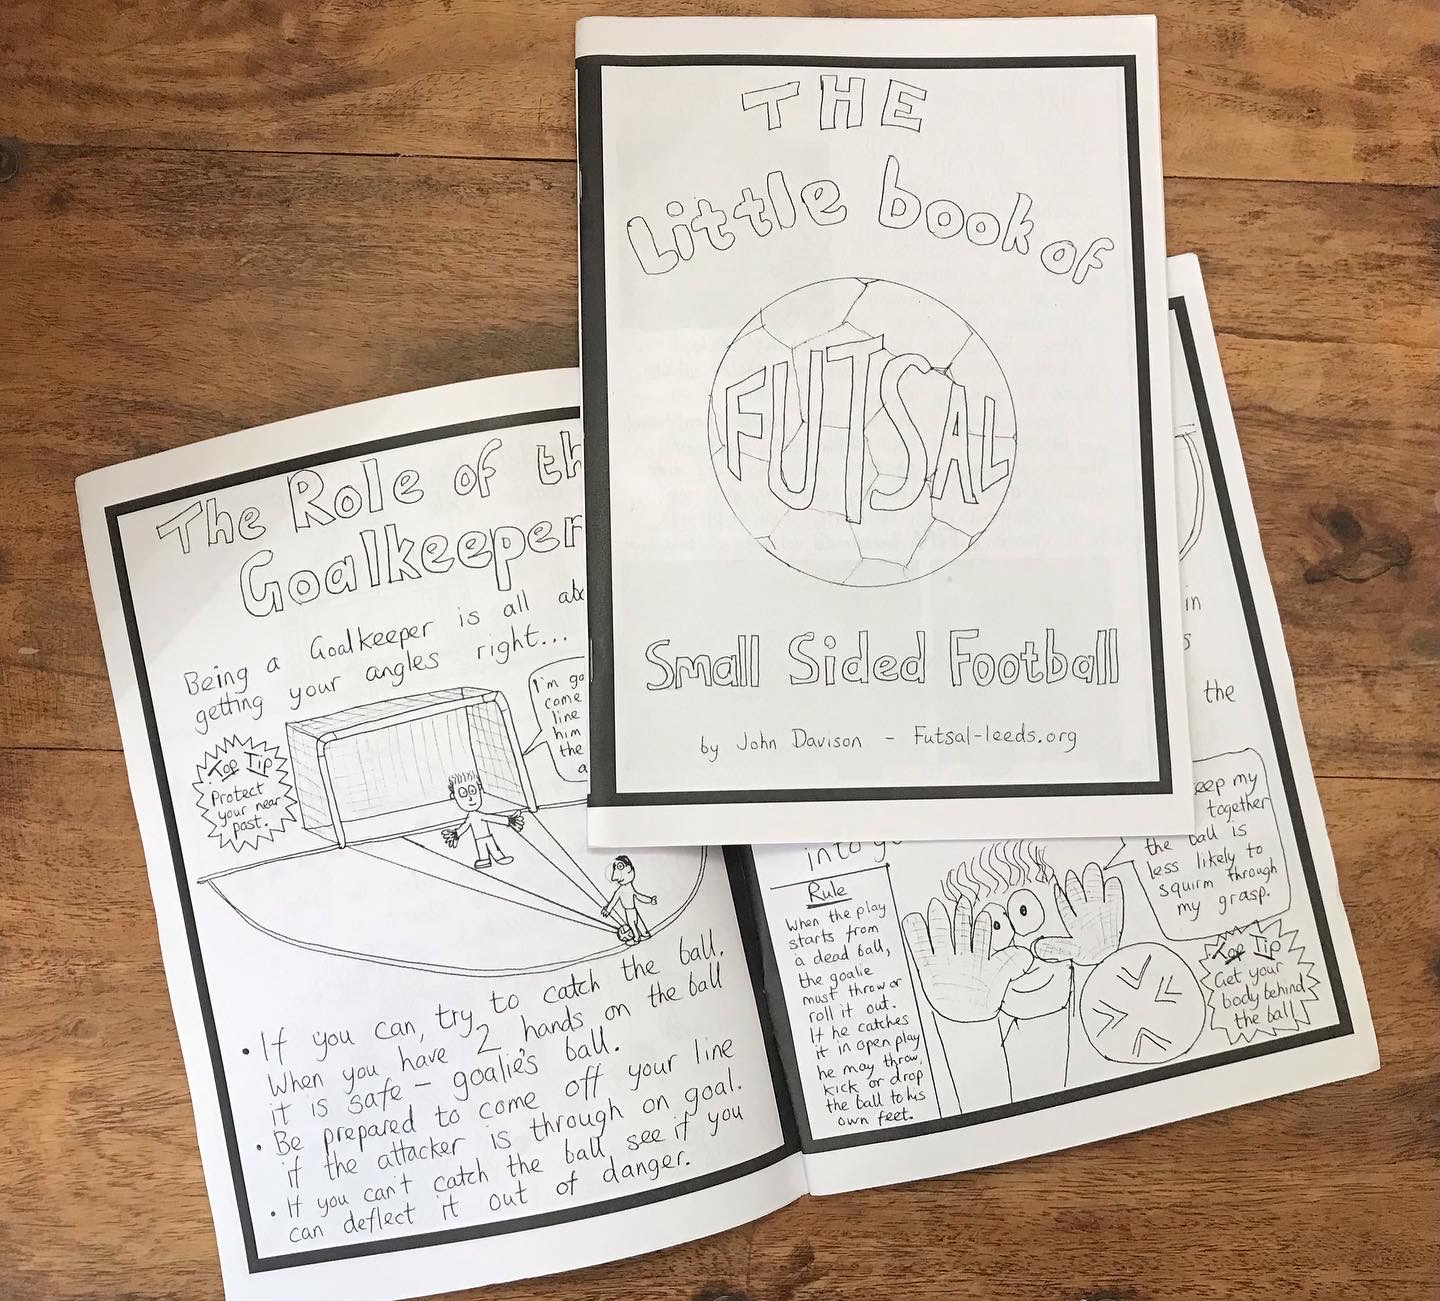 THE
Little book of
FUTSAL
Small Sided Football
by John Davison - Futsal-leeds.org
The Role of th
Goalkeeper
Being a Goalkeeper is all abo
getting your angles right...
I'm go
come
line
him
the
a
Top Tip
Protect
your near
post.
• If you can, try to catch the ball.
When you have 2 hands on the ball
it is safe - goalie's ball.
• Be prepared to come off your line
if the attacker is through on goal.
• If you can't catch the ball, see if you
can deflect it out of danger.
in
s
the
into yo
eep my
together
the ball is
less likely to
squirm through
my grasp.
Rule
When the play
starts from
a dead ball,
the goalie
must throw or
roll it out.
If he catches
it in open play
he may throw,
kick or drop
the ball to his
own feet.
Top Tip
Get your
body behind
the ball